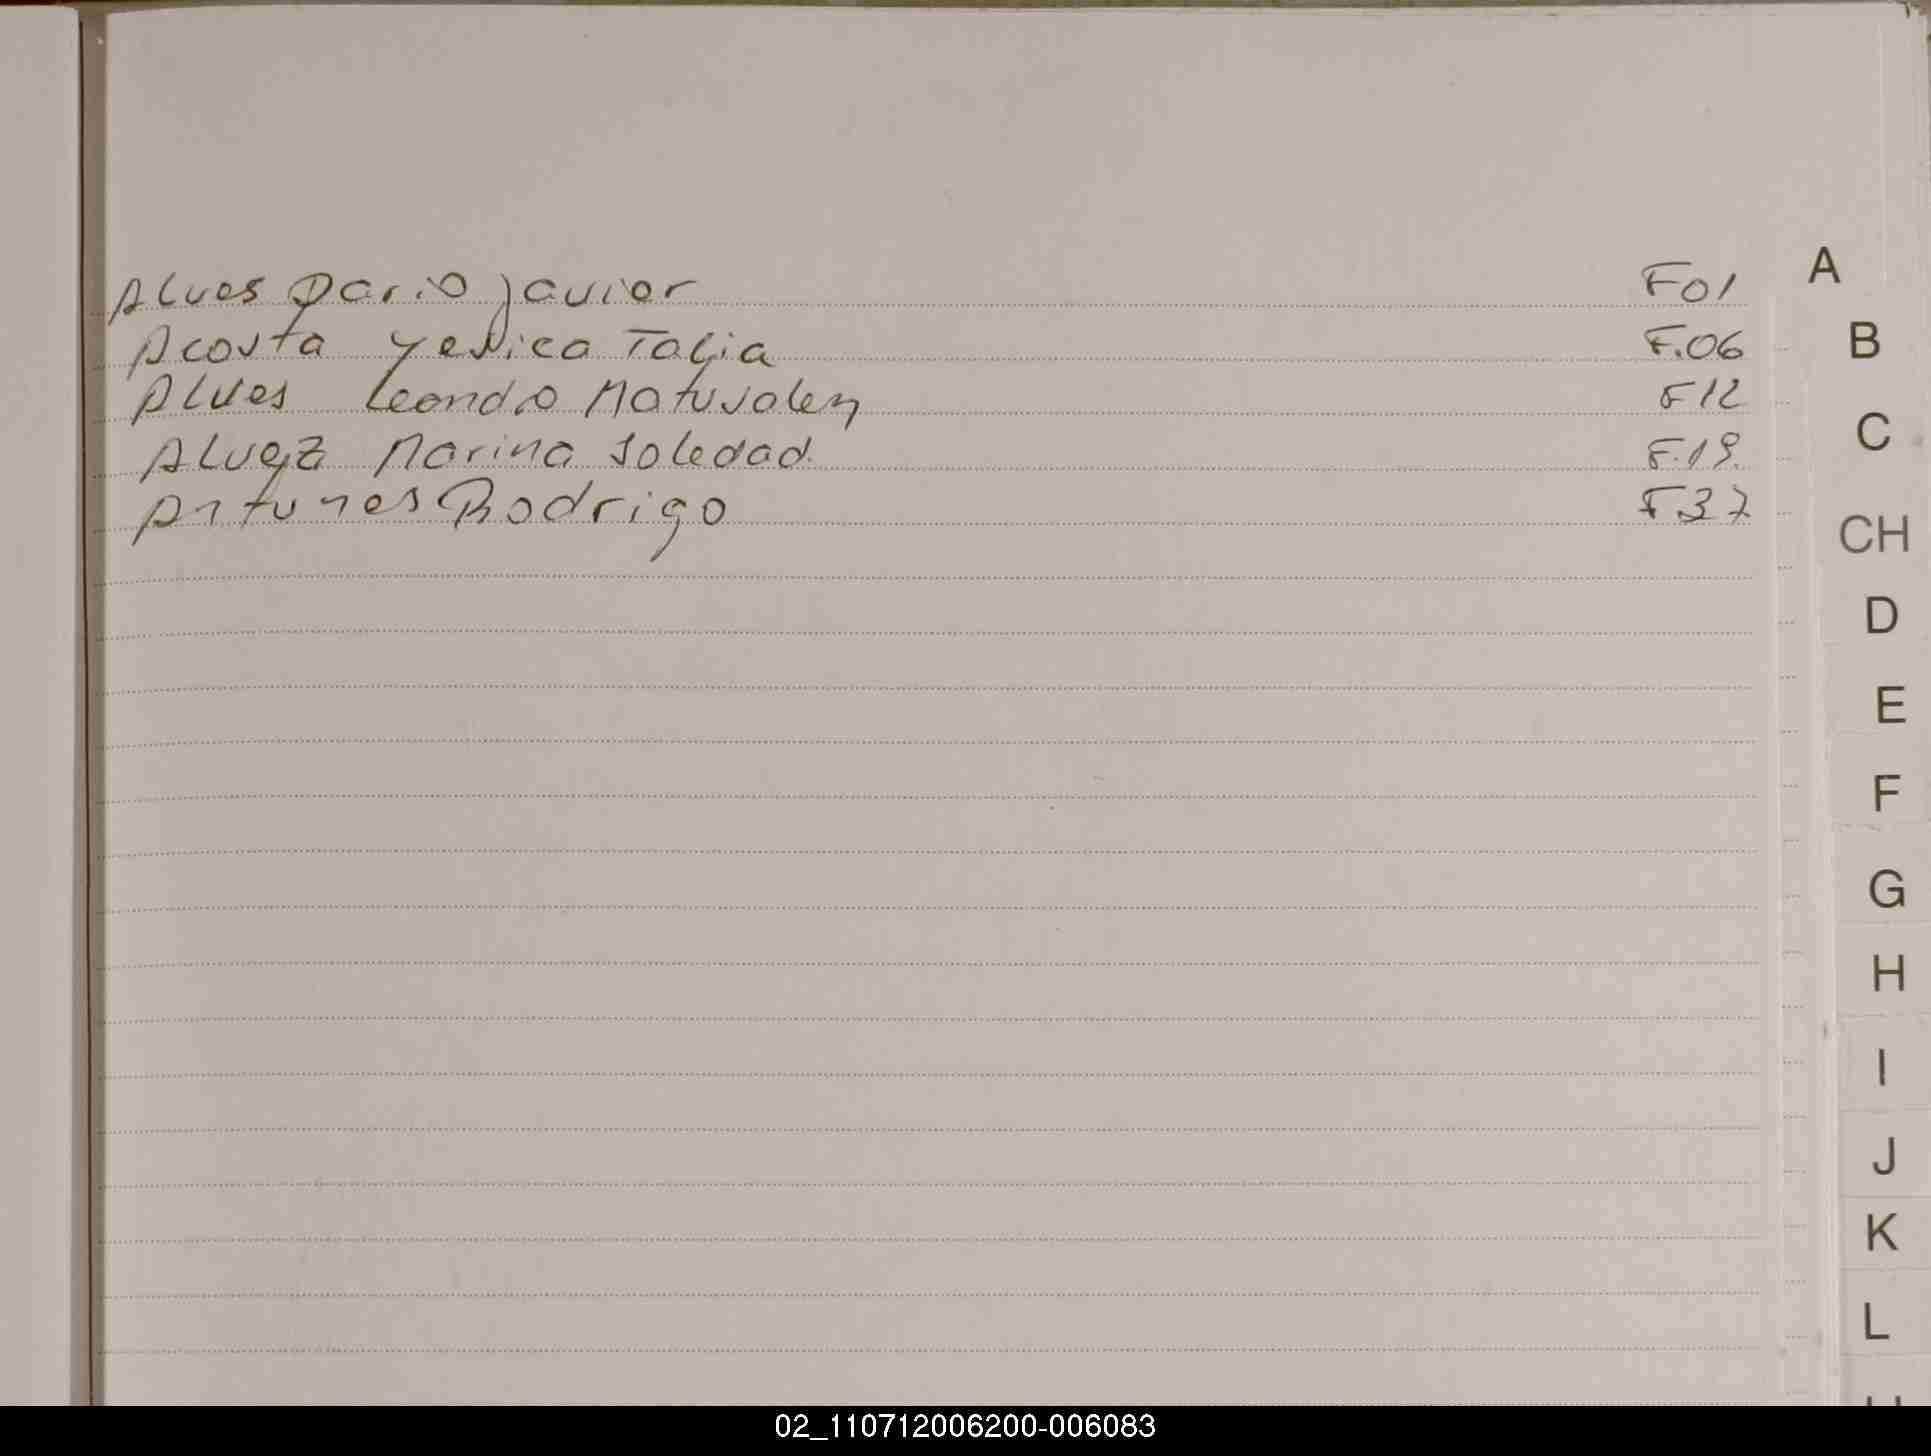 Alves Dario Javier F01
Acosta Yesica Talia F.06
Alves Leandro Matusalen F12
Alvez Marina Soledad. F.19.
Antunes Rodrigo F37
A
B
C
CH
D
E
F
G
H
I
J
K
L
02_110712006200-006083